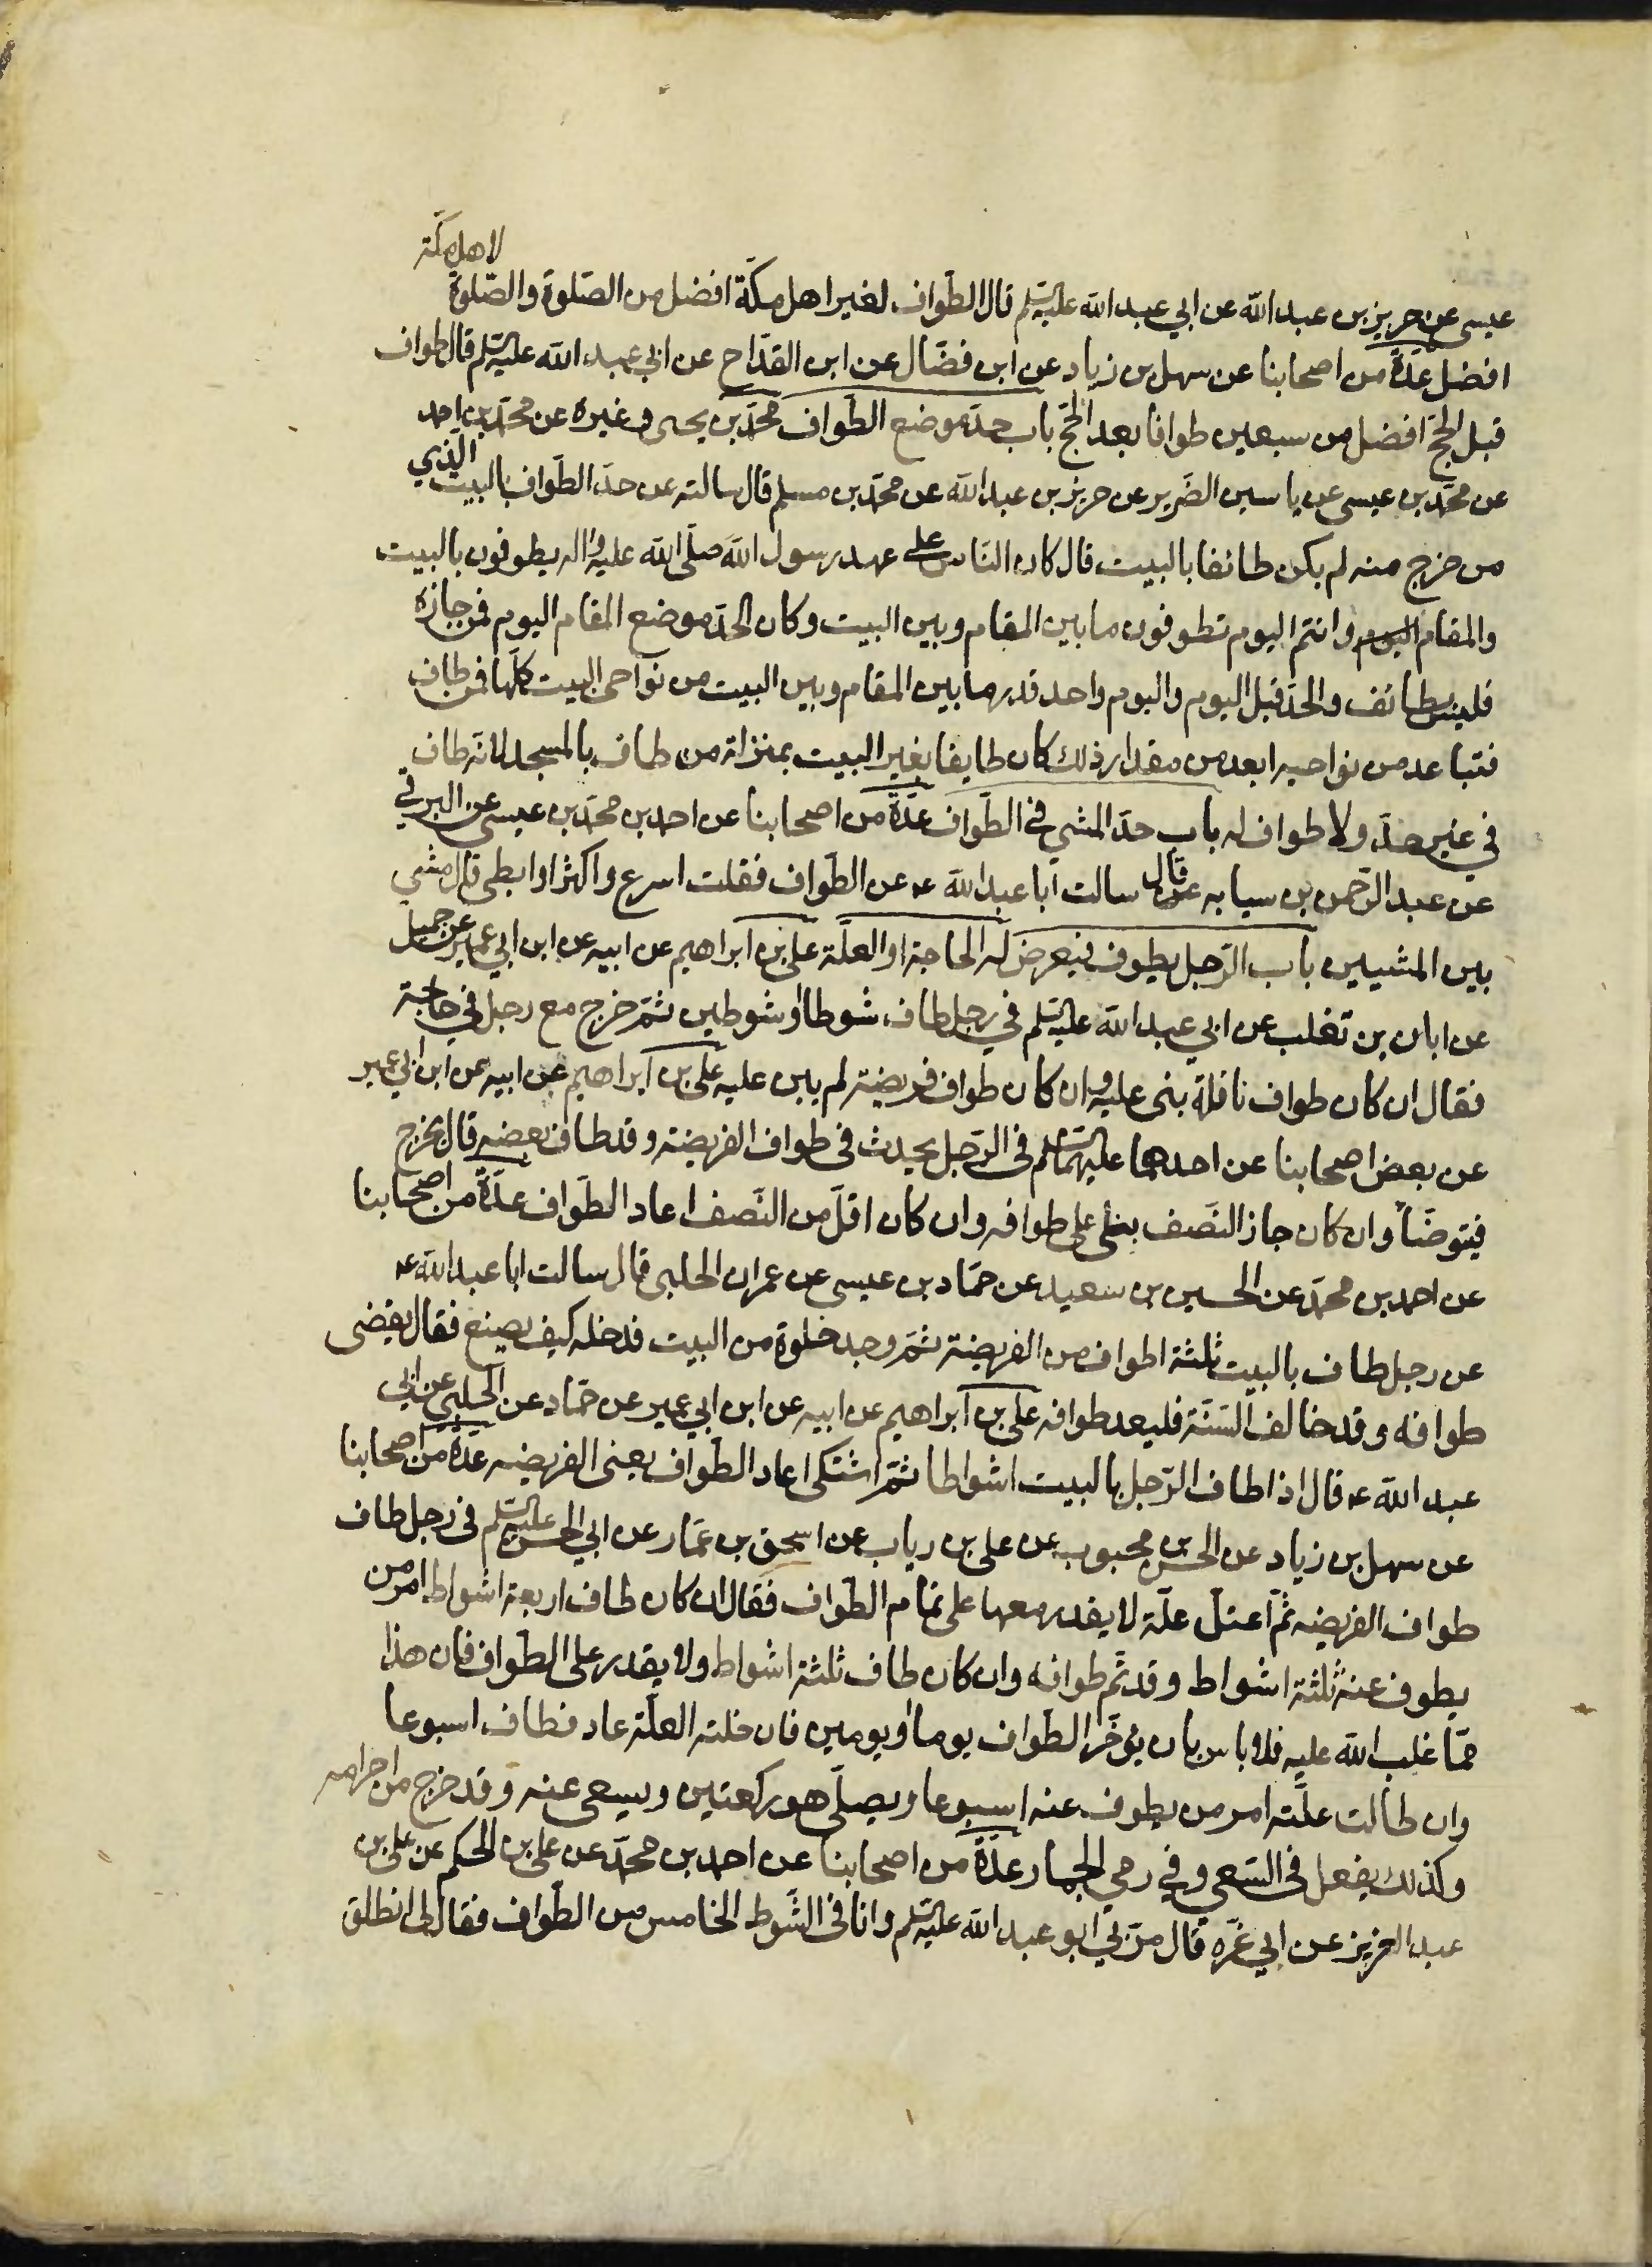 عيسى عن حريز بن عبد الله عن ابي عبد الله عليه السلم قال الطواف لغير اهل مكة افضل من الصلوة والصلوة لاهل مكة
افضل عدة من اصحابنا عن سهل بن زياد عن ابن فضال عن ابن القداح عن ابي عبد الله عليه السلم قال طواف
قبل الحج افضل من سبعين طوافا بعد الحج باب حد موضع الطواف محمد بن يحيى وغيره عن محمد بن احمد
عن محمد بن عيسى عن ياسين الضرير عن حريز بن عبد الله عن محمد بن مسلم قال سالته عن حد الطواف بالبيت الذي
من خرج منه لم يكن طائفا بالبيت قال كان الناس على عهد رسول الله صلى الله عليه واله يطوفون بالبيت
والمقام اليوم وانتم اليوم تطوفون ما بين المقام وبين البيت وكان الحد موضع المقام اليوم فمن جازه
فليس بطائف والحد قبل اليوم واليوم واحد قدر ما بين المقام وبين البيت من نواحى البيت كلها فمن طاف
فتباعد من نواحيه ابعد من مقدار ذلك كان طايفا بغير البيت بمنزلة من طاف بالمسجد لانه طاف
في غير حد ولا طواف له باب حد المشي في الطواف عدة من اصحابنا عن احمد بن محمد بن عيسى عن البرقي
عن عبد الرحمن بن سيابه قال سالت ابا عبد الله ع عن الطواف فقلت اسرع واكثر او ابطى قال مشي
بين المشيين باب الرجل يطوف فيعرض له الحاجة او العلة على بن ابراهيم عن ابيه عن ابن ابي عمير عن جميل
عن ابان بن تغلب عن ابي عبد الله عليه السلم في رجل طاف شوطا او شوطين ثم خرج مع رجل في حاجة
فقال ان كان طواف نافلة بنى عليه وان كان طواف فريضة لم يبن عليه على بن ابراهيم عن ابيه عن ابن ابي عمير
عن بعض اصحابنا عن احدهما عليهما السلم فى الرجل يحدث فى طواف الفريضة وقد طاف بعضه قال يخرج
فيتوضأ وان كان جاز النصف بنى على طوافه وان كان اقل من النصف اعاد الطواف عدة من اصحابنا
عن احمد بن محمد عن الحسين بن سعيد عن حماد بن عيسى عن عمران الحلبى قال سالت ابا عبد الله ع
عن رجل طاف بالبيت ثلثة اطواف من الفريضة ثم وجد خلوة من البيت فدخله كيف يصنع فقال يقضى
طوافه وقد خالف السنة فليعد طوافه على بن ابراهيم عن ابيه عن ابن ابي عمير عن حماد عن الحلبى عن ابي
عبد الله ع قال اذا طاف الرجل بالبيت اشواطا ثم اشتكى اعاد الطواف يعنى الفريضه عدة من اصحابنا
عن سهل بن زياد عن الحسن بن محبوب عن على بن رياب عن اسحق بن عمار عن ابي الحسن عليه السلم فى رجل طاف
طواف الفريضه ثم اعتل علة لا يقدر معها على تمام الطواف فقال ان كان طاف اربعة اشواط امر من
يطوف عنه ثلثة اشواط وقد تم طوافه وان كان طاف ثلثة اشواط ولا يقدر على الطواف فان هذا
مما غلب الله عليه فلا باس بان يؤخر الطواف يوما او يومين فان خلته العلة عاد فطاف اسبوعا
وان طالت علته امر من يطوف عنه اسبوعا ويصلى هو ركعتين ويسعى عنه وقد خرج من احرامه
وكذلك يفعل فى السعي وفي رمي الجمار عدة من اصحابنا عن احمد بن محمد عن على بن الحكم عن على بن
عبد العزيز عن ابي غره قال مر بي ابو عبد الله عليه السلم وانا فى الشوط الخامس من الطواف فقال لى انطلق